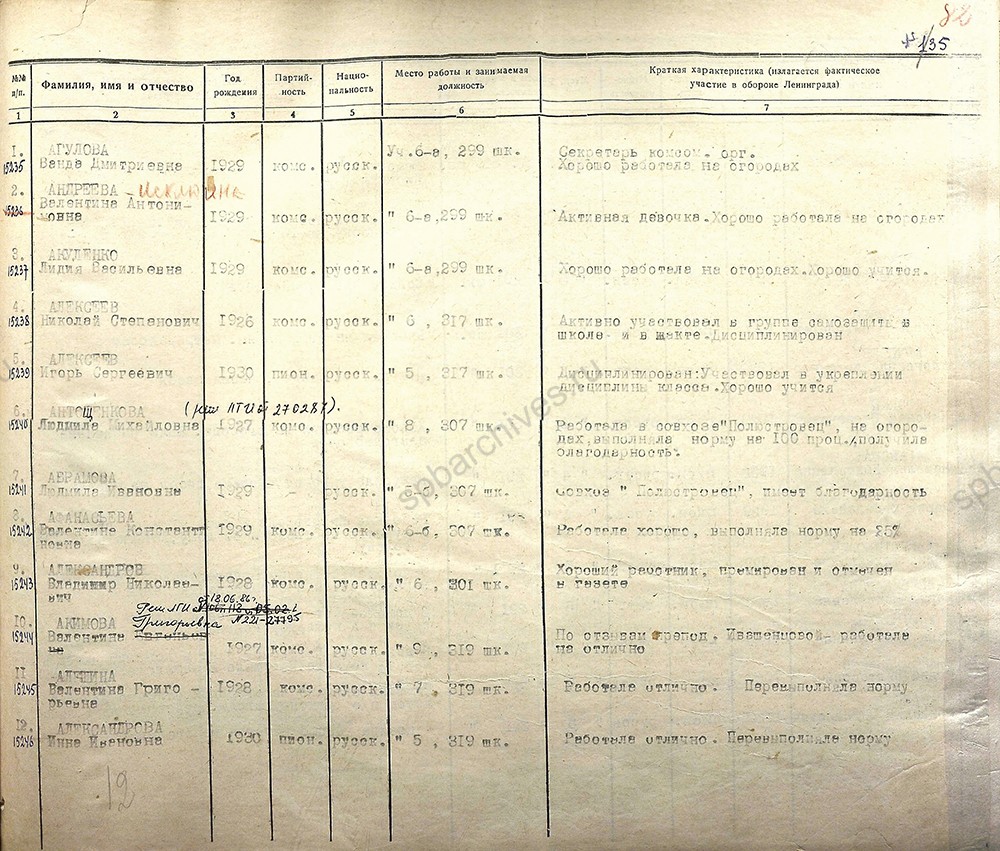 82
№ 135
№№ п/п. Фамилия, имя и отчество Год рождения Партий-ность Нацио-нальность Место работы и занимаемая должность Краткая характеристика (излагается фактическое участие в обороне Ленинграда)
1 2 3 4 5 6 7
1. АГУЛОВА Уч. 6-а, 299 шк. Секретарь комсом. орг.
15235 Ванда Дмитриевна 1929 комс. русск. Хорошо работала на огородах
2. АНДРЕЕВА - Исключена
15236 Валентина Антони-
мовна 1929 комс. русск. " 6-а, 299 шк. Активная девочка. Хорошо работала на огородах
3. АКУЛЕНКО
15237 Лидия Васильевна 1929 комс. русск. " 6-а, 299 шк. Хорошо работала на огородах. Хорошо учится.
4. АЛЕКСЕЕВ
15238 Николай Степанович 1926 комс. русск. " 6 , 317 шк. Активно участвовал в группе самозащиты в
школе и в жакте. Дисциплинирован
5. АЛЕКСЕЕВ
15239 Игорь Сергеевич 1930 пион. русск. " 5 , 317 шк. Дисциплинирован: Участвовал в укреплении
дисциплины класса. Хорошо учится
6. АНТОЩЕНКОВА (реш ЛГИ от 270287).
15240 Людмила Михайловна 1927 комс. русск. " 8 , 307 шк. Работала в совхозе "Полюстровец", на огоро-
дах, выполняла норму на 100 проц., получила
благодарность.
7. АБРАМОВА
15241 Людмила Ивановна 1929 - русск. " 6-б, 307 шк. Совхоз " Полюстровец", имеет благодарность
8. АФАНАСЬЕВА
15242 Валентина Константи
новна 1929 комс. русск. " 6-б, 307 шк. Работала хорошо, выполняла норму на 85%
9. АЛЕКСАНДРОВ Хороший работник, премирован и отмечен
15243 Владимир Николае-
вич 1928 комс. русск. " 6 , 301 шк. в газете
от 18.06.86г.
Реш ЛГИ
10. АКИМОВА Григорьевна № 221-27795
15244 Валентина Евгеньев
на 1927 комс. русск. " 9 , 319 шк. По отзывам препод. Ивашенцовой- работала
на отлично
11 АЛЕШИНА
15245 Валентина Григо -
рьевна 1928 комс. русск. " 7 , 319 шк. Работала отлично. Перевыполняла норму
12. АЛЕКСАНДРОВА
15246 Инна Ивановна 1930 пион. русск. " 5 , 319 шк. Работала отлично. Перевыполняла норму
12
spbarchives.ru